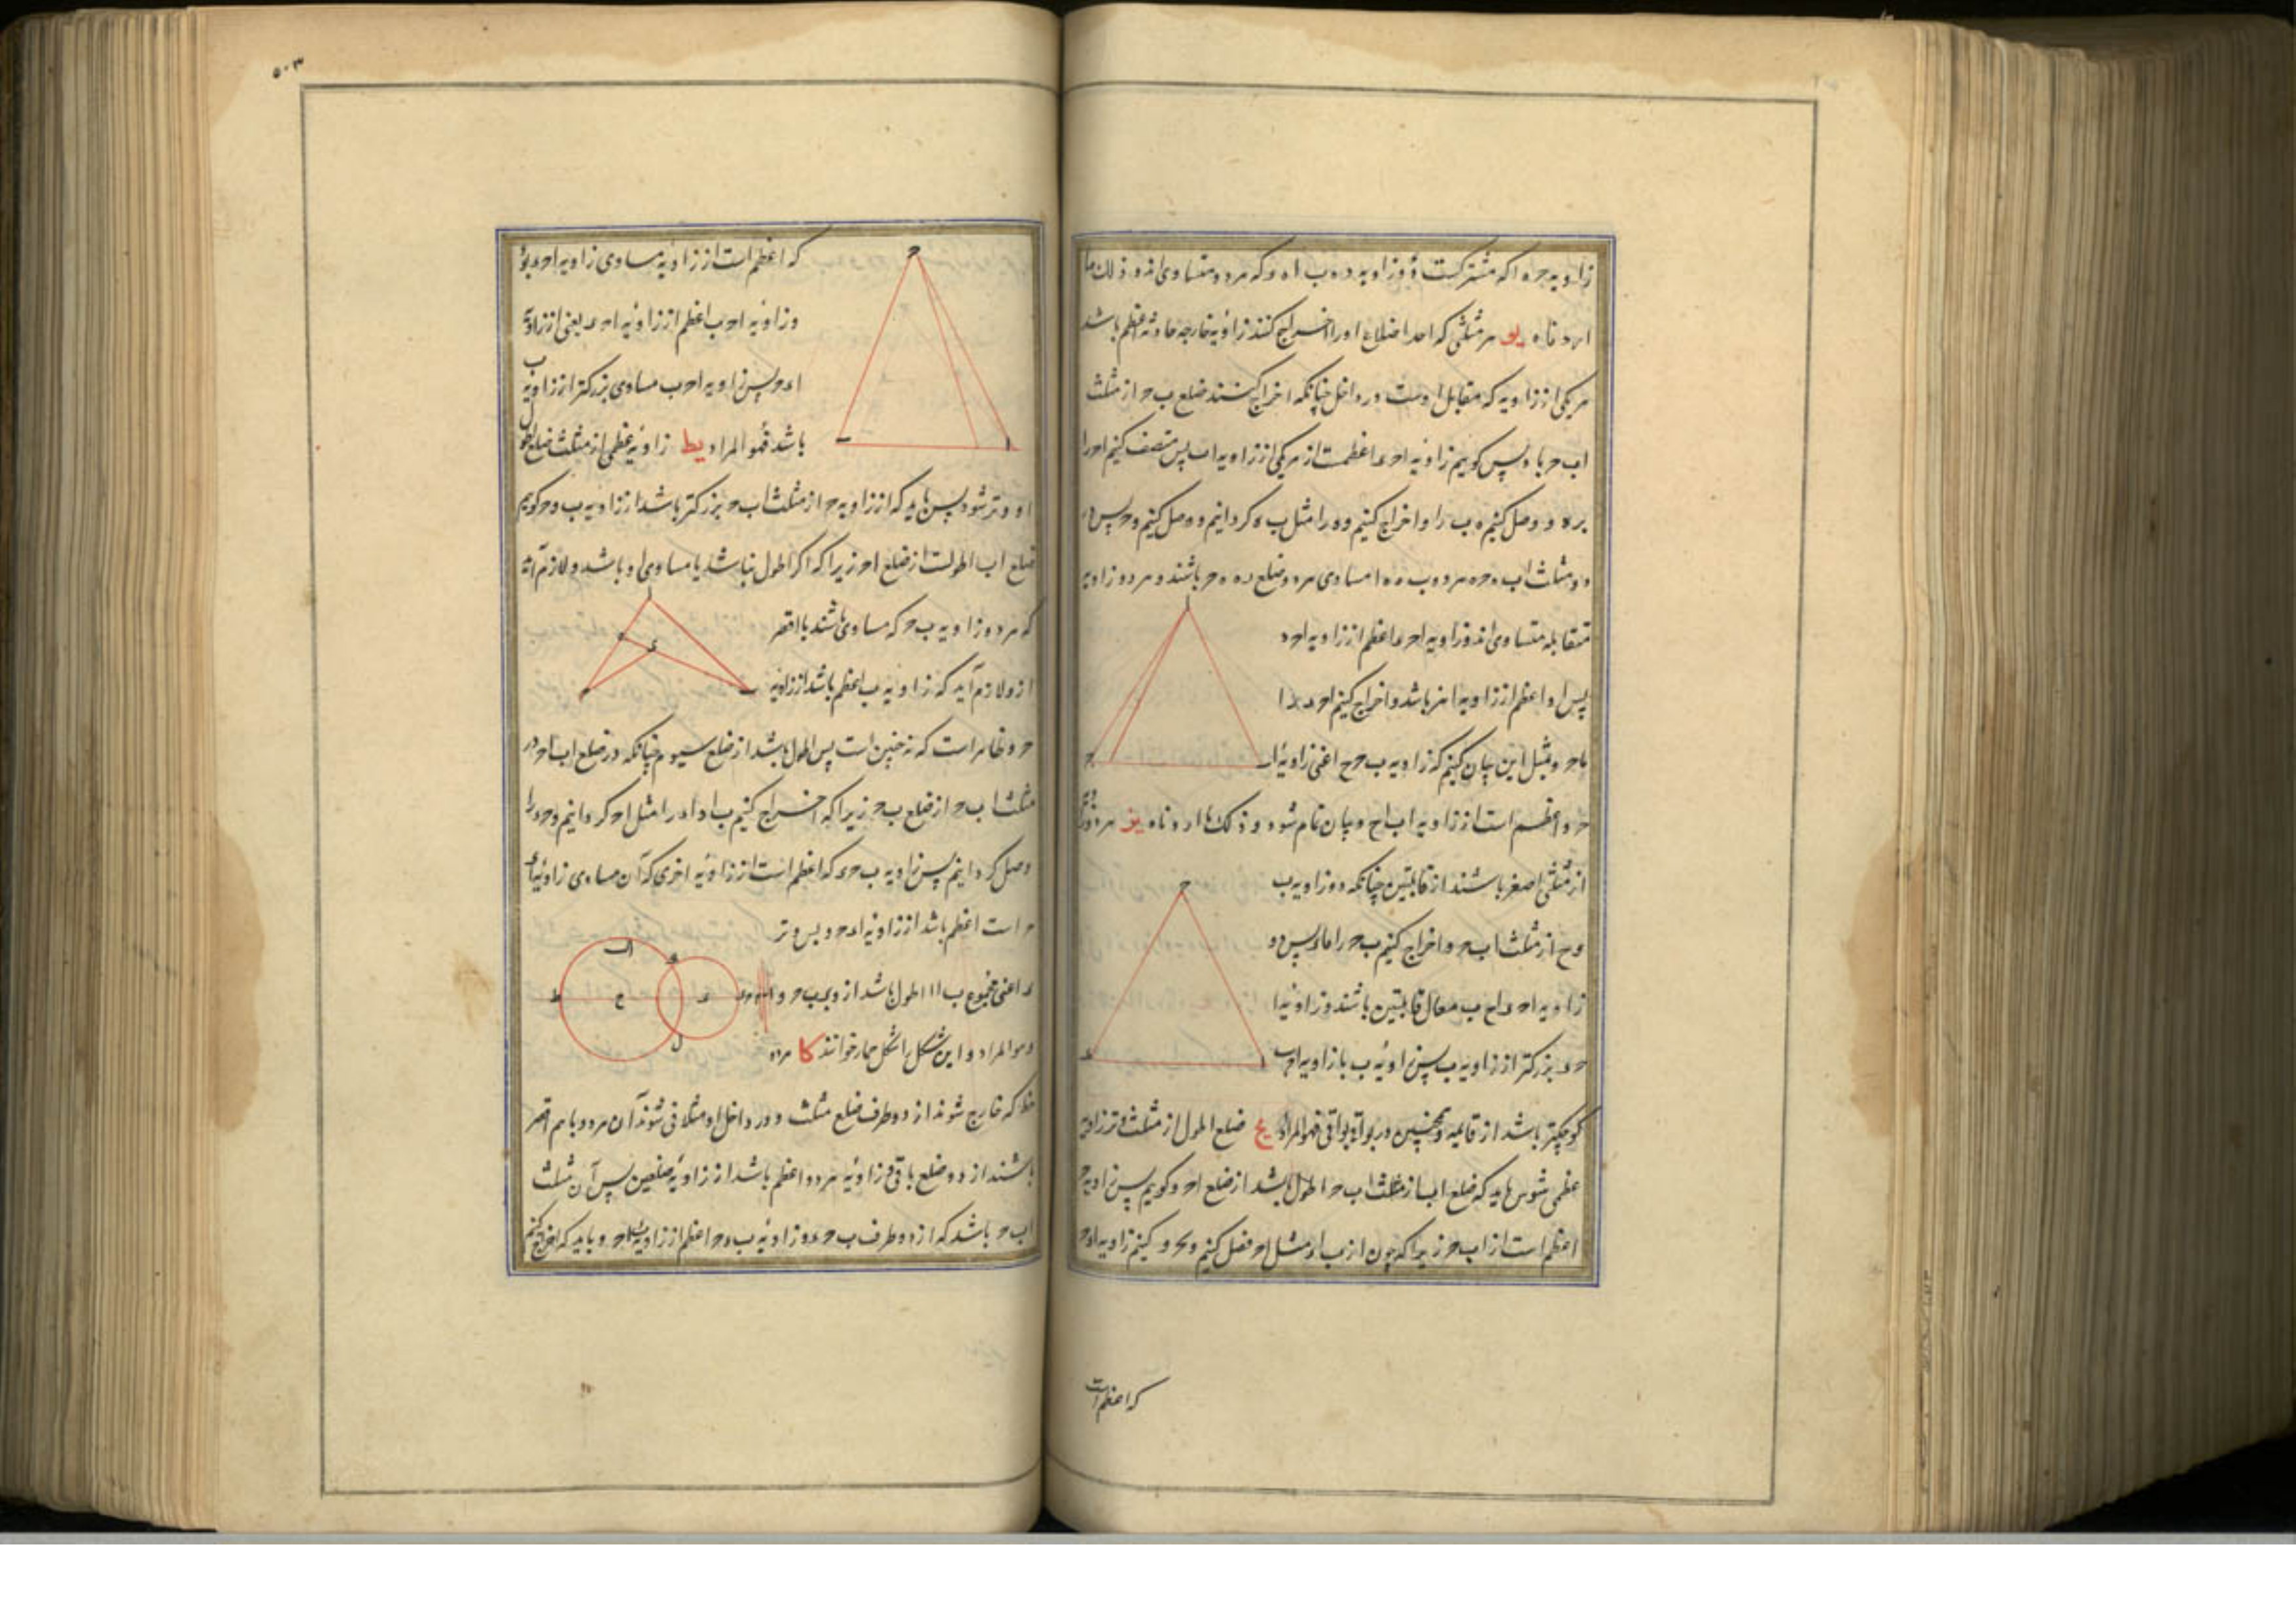 زاویه ح ه ا که مشترکست و زاویه د ه ب ا ه و که هر دو متساوی‌اند و ذلک ما
اردناه یو هر مثلثی که احد اضلاع او را اخراج کنند زاویه خارجه حادثه اعظم باشد
هر یکی از زاویه که مقابل اوست در داخل چنانکه اخراج کنند ضلع ب ح از مثلث
ا ب ح با د پس گویم زاویه ا ح د اعظمست از هر یکی از زاویه ا ب پس منصف کنیم ا ح را
بر ه و وصل کنیم ه ب را و اخراج کنیم و ه ر را مثل ب ه گردانیم و وصل کنیم
دو مثلث ا ب ه ح ه ر دو ب ه ه ا مساوی هر دو ضلع ر ه ه ح باشند و هر دو زاویه
متقابله متساوی‌اند و زاویه ا ح د اعظم از زاویه ا ح ه
پس او اعظم از زاویه ا نیز باشد و اخراج کنیم ا ح را
با ح و بمثل این بیان کنیم که زاویه ب ح ح اعنی زاویه ا
ح د اعظم است از زاویه ا ب ح و بیان تمام شود و ذلک ما اردناه یز هر دو زاویه
از مثلثی اصغر باشند از قائمتین چنانکه دو زاویه ب
و ح از مثلث ا ب ح و اخراج کنیم ب ح را تا د پس دو
زاویه ا ح د ا ح ب معادل قائمتین باشند و زاویه ا
ح د بزرگتر از زاویه ب پس زاویه ب با زاویه ا ح ب
کوچکتر باشد از قائمتین و همچنین در بواقی فهو المراد یح ضلع اطول از مثلث وتر زاویه
عظمی شود باید که ضلع ا ب از مثلث ا ب ح اطول باشد از ضلع ا ح و گویم پس زاویه ح
اعظم است از ا ب ح زیرا که چون از ب ا د مثل ا ح فصل کنیم و ح د کنیم زاویه ا د ح
که اعظم است
۵۰۳
که اعظم است از زاویه مساوی زاویه ا ح د بود
و زاویه ا ح ب اعظم از زاویه ا ح د یعنی از زاویه
ا د ح پس زاویه ا ح ب مساوی بزرگتر از زاویه ب
باشد فهو المراد یط زاویه عظمی از مثلث ضلع اطول
او وتر شود پس باید که از زاویه ح از مثلث ا ب ح بزرگتر باشد از زاویه ب و گویم
ضلع ا ب اطولست از ضلع ا ح زیرا که اگر اطول نباشد یا مساوی او باشد و لازم آید
که هر دو زاویه ب ح که مساوی باشند یا اقصر
از و لازم آید که زاویه ب اعظم باشد از زاویه
ح و ظاهر است که نه چنین است پس اطول باشد از ضلع سیوم چنانکه در ضلع ا ب ا ح در
مثلث ا ب ح از ضلع ب ح زیرا که اخراج کنیم ب ا و ا د را مثل ا ح گردانیم و ح د را
وصل گردانیم پس زاویه ب ح د که اعظم است از زاویه اخری که آن مساوی زاویه د
ح است اعظم باشد از زاویه ا د ح و پس وتر
د اعنی مجموع ب ا ا اطول باشد از وتر ب ح
و هو المراد و این شکل را شکل حمار خوانند کا هر دو
خط که خارج شوند از دو طرف ضلع مثلث و در داخل او متلاقی شوند آن هر دو با هم اقصر
باشند از دو ضلع باقی و زاویه هر دو اعظم باشد از زاویه ضلعین پس آن مثلث
ا ب ح باشد که از دو طرف ب ح د و زاویه ب د ح اعظم از زاویه ب ا ح و باید که اخراج کنیم